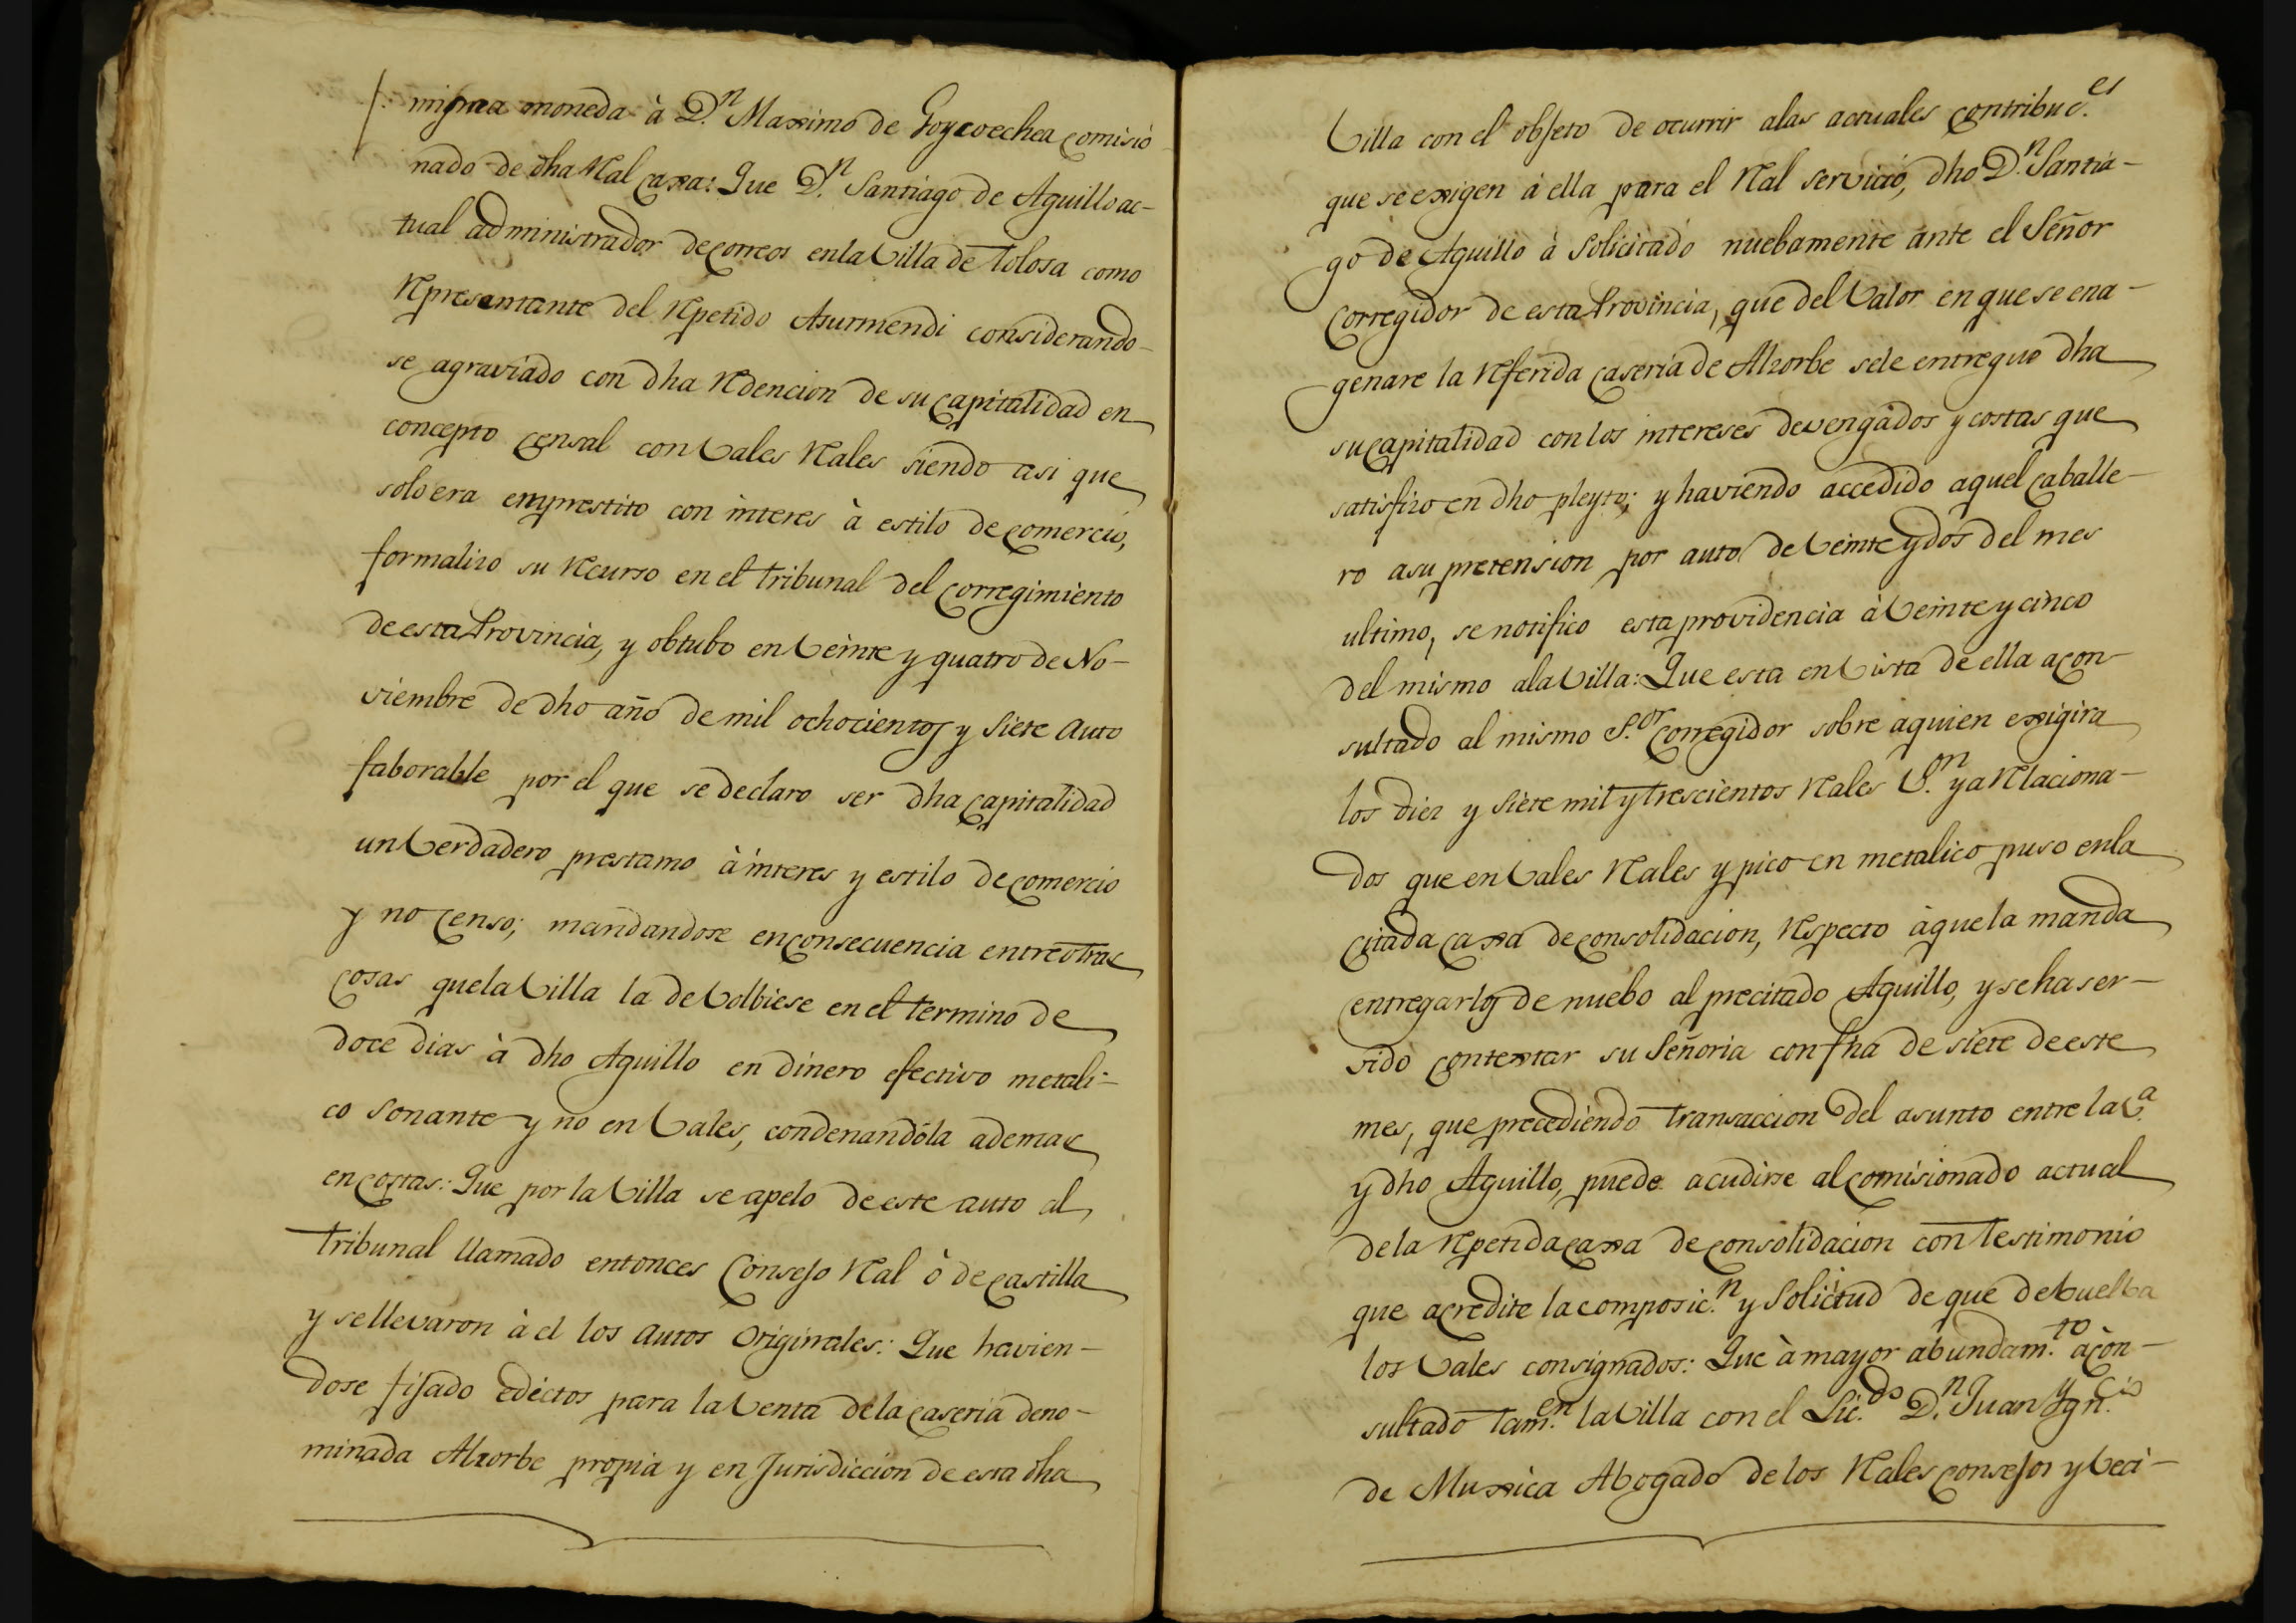 misma moneda à D.n Maximo de Goycoechea comisio
nado de dha Real caxa: Que D.n Santiago de Aguillo ac-
tual administrador de correos en la Villa de Tolosa como
Representante del Repetido Asurmendi considerando-
se agraviado con dha Redencion de su capitalidad en
concepto censal con Vales Reales siendo asi que
solo era emprestito con interes à estilo de comercio,
formalizo su Recurso en el tribunal del corregimiento
de esta Provincia, y obtubo en Veinte y quatro de No-
viembre de dho año de mil ochocientos y siete auto
faborable por el que se declaro ser dha capitalidad
un Verdadero prestamo à interes y estilo de comercio
y no censo; mandandose en consecuencia entre otras
cosas que la Villa la de Volbiese en el termino de
doce dias à dho Aguillo en dinero efectivo metali-
co sonante y no en Vales, condenandola ademas
en costas: Que por la Villa se apelo de este auto al
tribunal llamado entonces Consejo Real ò de castilla
y se llevaron à el los autos originales: Que havien-
dose fijado edictos para la Venta de la caseria deno-
minada Alzorbe propia y en Jurisdiccion de esta dha
Villa con el objeto de ocurrir a las actuales contribuc.es
que se exigen à ella para el Real servicio, dho D.n Santia-
go de Aguillo à solicitado nuebamente ante el Señor
corregidor de esta Provincia, que del Valor en que se ena-
genare la Referida caseria de Alzorbe se le entregue dha
su capitalidad con los intereses devengados y costas que
satisfizo en dho pleyto; y haviendo accedido aquel caballe-
ro a su pretension por auto de Veinte y dos del mes
ultimo, se notifico esta providencia à Veinte y cinco
del mismo a la Villa: Que esta en Vista de ella a con-
sultado al mismo S.or corregidor sobre a quien exigira
los diez y siete mil y trescientos Reales V.on ya Relaciona-
dos que en Vales Reales y pico en metalico puso en la
citada caxa de consolidacion, Respecto à que la manda
entregarlos de nuebo al precitado Aguillo, y se ha ser-
vido contextar su Señoria con fha de siete de este
mes, que precediendo transaccion del asunto entre la V.a
y dho Aguillo, puede acudirse al comisionado actual
de la Repetida caxa de consolidacion con testimonio
que acredite la composic.n y solicitud de que debuelba
los Vales consignados: Que à mayor abundam.to à con-
sultado tam.en la Villa con el Lic.do D.n Juan Ygn.cio
de Muxica Abogado de los Reales consejos y Veci-